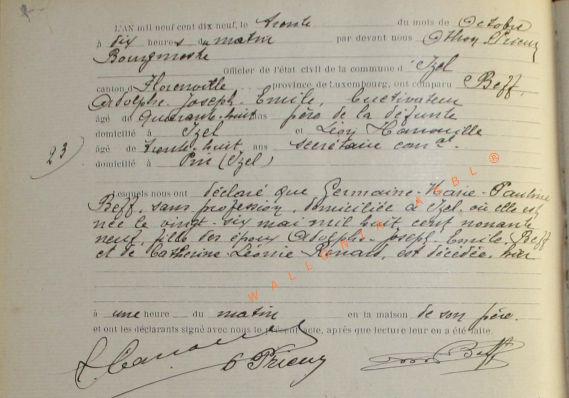 L'AN mil neuf cent dix neuf, le trente du mois de Octobre
à dix heures du matin par devant nous Prieur
Bourgmestre
Officier de l'état civil de la commune d'Izel
canton Florenville province de Luxembourg, ont comparu Beff
Adolphe-Joseph-Emile, Cultivateur
âgé de quarante-huit ans père de la défunte
domicilié à Izel et Léon
23) âgé de trente-huit ans secrétaire comal.
domicilié à Pin (Izel)
Lesquels nous ont déclaré que Germaine-Marie-Pauline
Beff, sans profession, domiciliée à Izel où elle est
née le vingt-six mai mil huit cent nonante
neuf, fille des époux Adolphe-Joseph-Emile Beff
et de Catherine-Léonie, est décédée, hier
à une heure du matin en la maison de son père.
et ont les déclarants signé avec nous le présent acte, après que lecture leur en a été faite.
Prieur Beff
WALLONIA ASBL ®